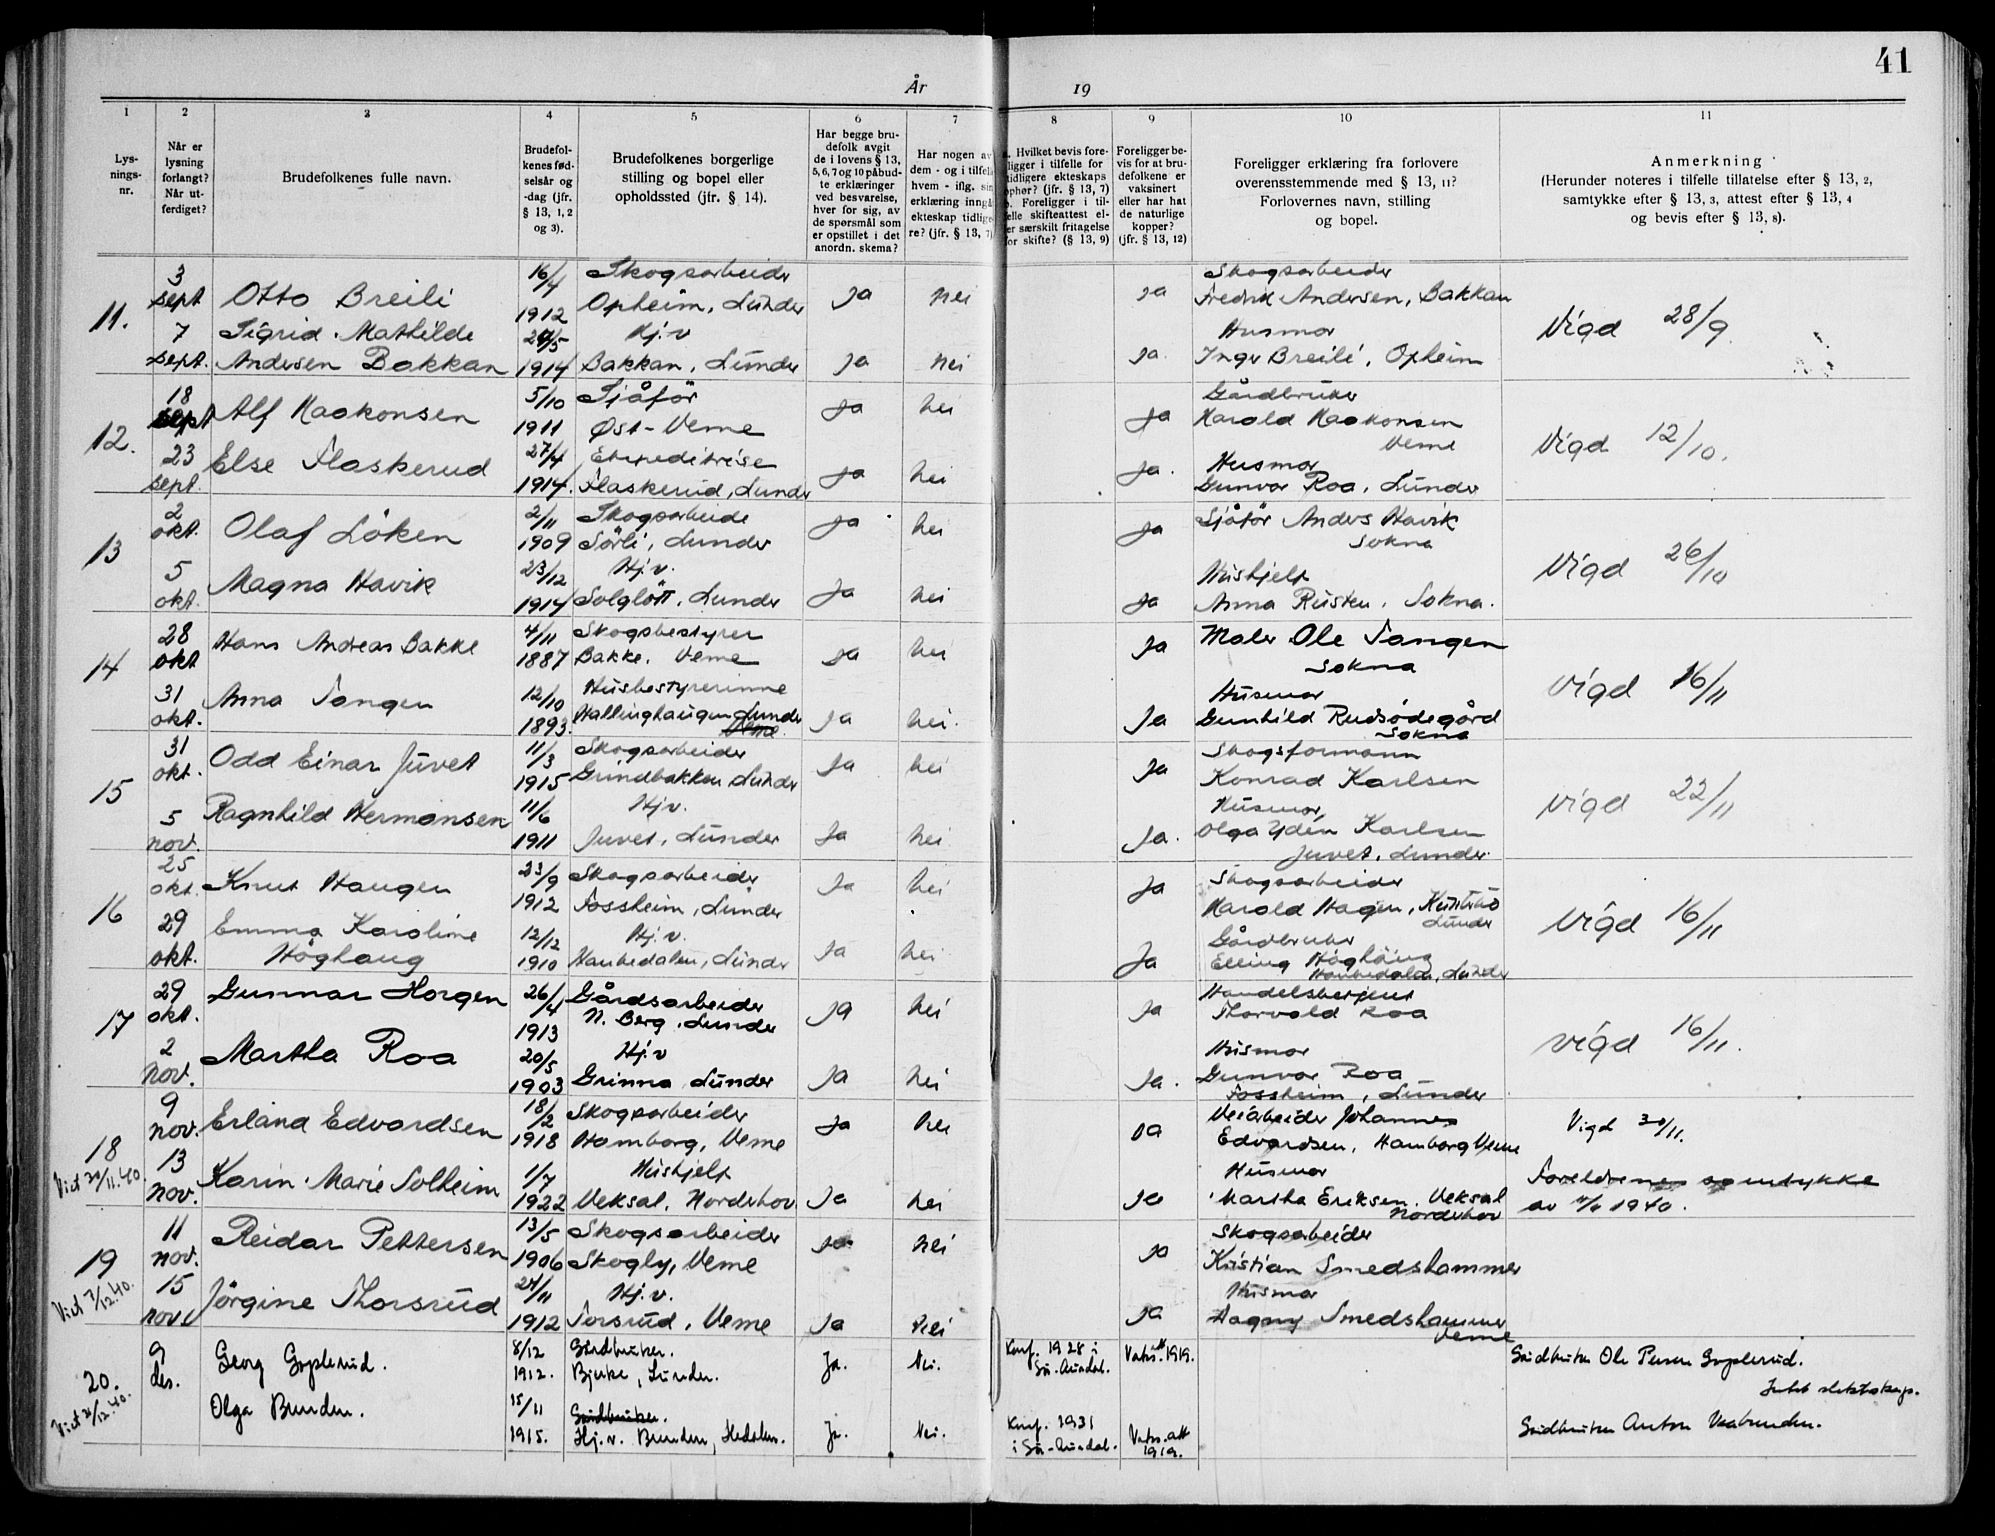 41
År 19
1 2 3 4 5 6 7 8 9 10 11
Lys-
nings-
nr.
Når er
lysning
forlangt?
Når ut-
ferdiget?
Brudefolkenes fulle navn.
Brudefol-
kenes fød-
selsår og
-dag (jfr.
§ 13, 1, 2
og 3).
Brudefolkenes borgerlige
stilling og bopel eller
opholdssted (jfr. § 14).
Har begge bru-
defolk avgit
de i lovens § 13,
5, 6, 7 og 10 påbud-
te erklæringer
ved besvarelse,
hver for sig, av
de spørsmål som
er opstillet i det
anordn. skema?
Har nogen av
dem - og i tilfelle
hvem - iflg. sin
erklæring inngå
ekteskap tidlige-
re? (jfr. § 13, 7)
Hvilket bevis fore-
ligger i tilfelle for
tidligere ekteskaps
ophør? (jfr. § 13, 7)
Foreligger i til-
felle skifteattest el-
er særskilt fritagelse
for skifte? (§ 13, 9)
Foreligger be-
vis for at bru-
defolkene er
vaksinert
eller har hat
de naturlige
kopper?
(jfr. § 13, 12)
Foreligger erklæring fra forlovere
overensstemmende med § 13, 11?
Forlovernes navn, stilling
og bopel.
Anmerkning
(Herunder noteres i tilfelle tillatelse efter § 13, 2,
samtykke efter § 13, 3, attest efter § 13, 4
og bevis efter § 13, 8).
3 16/4 Skogsarbeider Skogsarbeider
11. sept Otto Breili 1912 Opheim, Lunder Ja nei ja Fredrik Andersen, Bakkan Vigd 28/9
7 Sigrid Mathilde Hj.v Husmor
sept. Andersen Bakkan 1914 Bakkan, Lunder Ja nei ja. Inger Breili, Opheim
18 5/10 Sjåför Gårdbruker
12. sept Alf Haakonsen 1911 Øst-Veme ja nei ja Harald Haakonsen Vigd 12/10.
Veme
23 Else Flaskerud 27/4 Ekspeditrise Husmor
sept. 1914. Flaskerud, Lunder ja nei ja. Gunvor Roa, Lunder
2 2/11 Skogsarbeide Sjåför Anders Havik
13 okt. Olaf Löken 1909 Sörli, Lunder ja nei ja Sokna Vigd 26/10
5 Magna Havik 23/12 Hj.v. Hushjelp
okt. 1914 Solglött, Lunder Ja nei ja Anna Rusten, Sokna.
28 4/11 Skogsbestyrer Maler Ole Tangen
14 okt Hans Andreas Bakke 1887 Bakke, Veme ja nei Ja Sokna vigd 16/11
31 Anna Tangen 12/10 Husbestyrerinne Husmor
okt. 1893. Hallinghaugen Lunder Ja nei. Ja Gunhild Rudsödegård
Veme Sokna
31 11/3 Skogsarbeider Skogsformann
15 okt. Odd Einar Juvet 1915 Grindbakken, Lunder Ja nei Ja Konrad Karlsen vigd 22/11
5 Ragnhild Hermansen 11/6 Hj.v. Husmor,
nov. 1911 Juvet, Lunder Ja nei Ja. Olga Karlsen
Juvet, Lunder.
25 23/9 Skogsarbeider Skogsarbeider
16 okt. Knut Haugen 1912 Fossheim, Lunder Ja nei Ja Harald Hagen, Vigd 16/11
Lunder
29 Emma Karoline 12/12 Hj.v. Gårdbruker
okt. Höghaug 1910 Haubedalen, Lunder Ja nei Ja Elling Höghaug
Haubedalen, Lunder
29 Gunnar Horgen 26/4 Gårdsarbeider Handelsbetjent
17 okt. 1913 N. Berg, Lunder ja nei Ja Thorvald Roa vigd 16/11.
2 Martha Roa 20/5 Hj.v Husmor
nov. 1903 Grinna Lunder Ja nei Ja. Gunvor Roa
Fossheim, Lunder
9 18/2 Skogsarbeider Veiarbeider Johannes
18 nov. Erland Edvardsen 1918 Hamborg, Veme ja nei ja Edvardsen, Hamborg Veme Vigd 30/11.
13 Karin Marie Solheim 1/7 Hushjelp Husmor Foreldrenes samtykke
nov. 1922 Veksal, Norderhov Ja nei ja Martha Eriksen, Veksal av 1940.
Norderhov
11 13/5 Skogsarbeider Skogsarbeider
19 nov. Reidar Pettersen 1906 Skogly, Veme ja nei ja Kristian Smedshammer
Viet 7/12.40.
15 Jörgine Thorsrud 24/11 Hj.v. Husmor
nov 1912 Torsrud, Veme Ja Nei ja Dagny Smedshammer
Veme
9 8/12 Gårdbruker. Konf. 1928 i Vaks. att 1919.
20. des. Georg Goplerud. 1912. Bjerke, Lunder. Ja. Nei. Sør-Aurdal. Gårdbruker Ole Persen Goplerud.
Intet slektskap.
Olga Brunden. 15/11 Gårdbruker. Konf. 1931
1915. Hj.v. Brunden, Hedalen. Ja. Nei. i Sør-Aurdal. Vaks. att 1919. Gårdbruker Anton